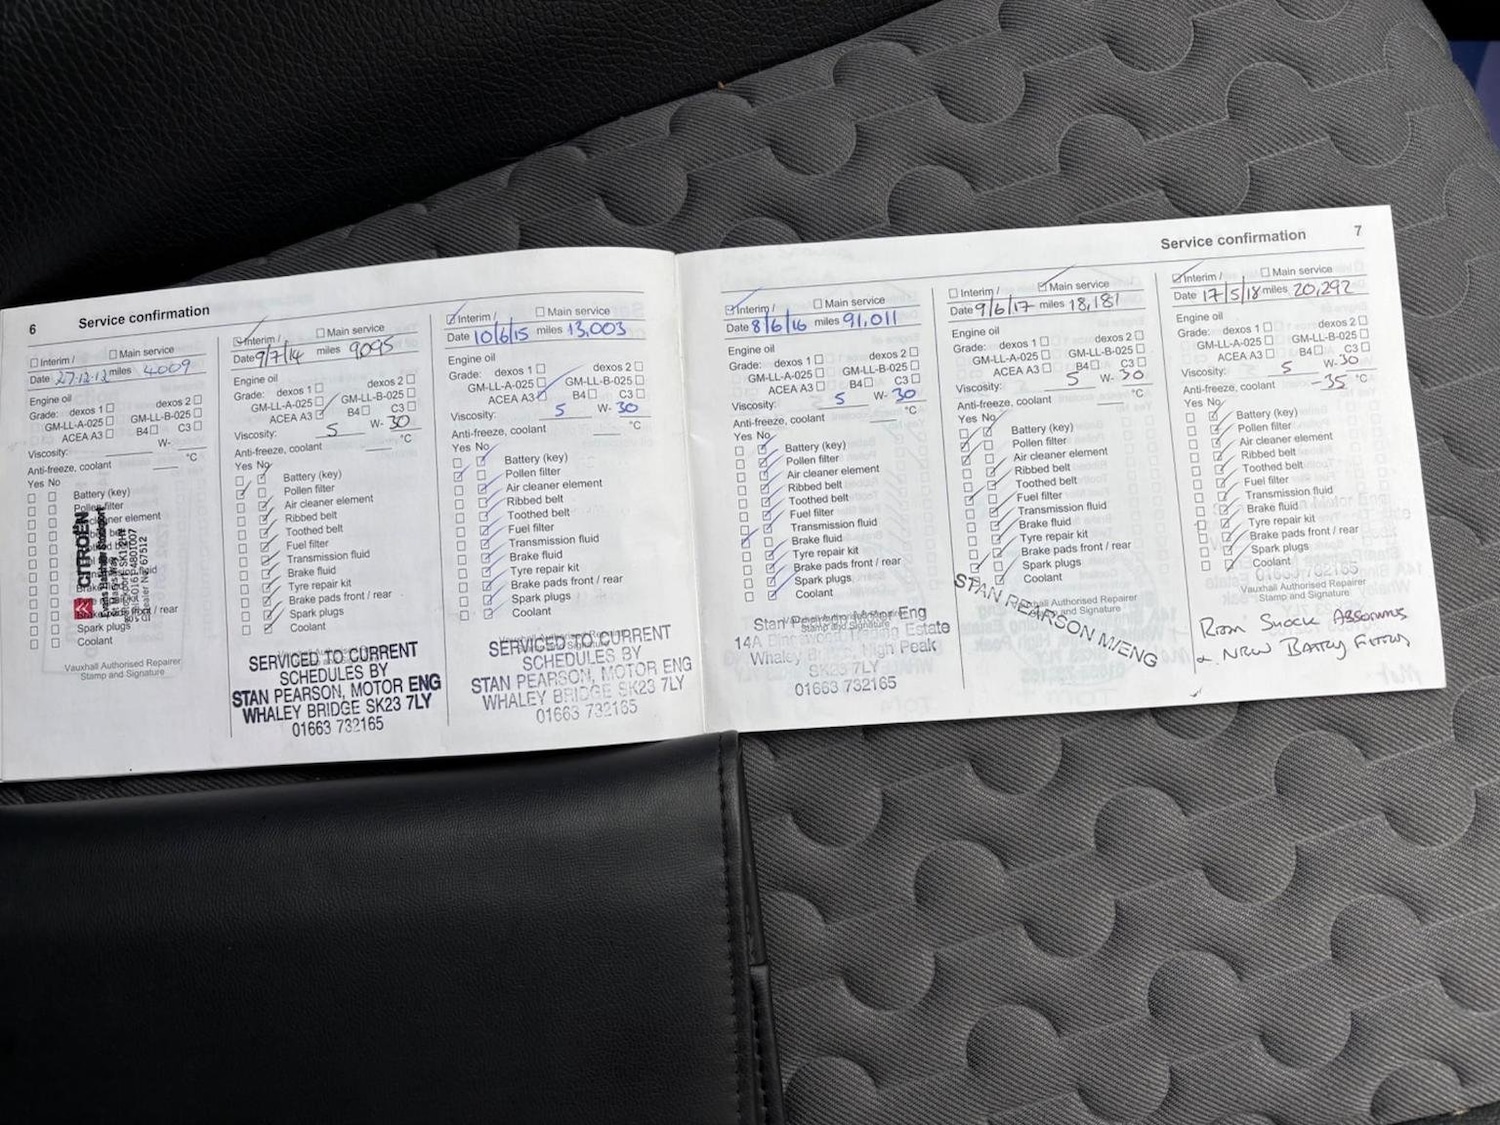 6 Service confirmation
☐ Interim / ☐ Main service
Date 27.12.12 miles 4009
Engine oil
Grade: dexos 1 ☐ dexos 2 ☐
GM-LL-A-025 ☐ GM-LL-B-025 ☐
ACEA A3 ☐ B4 ☐ C3 ☐
Viscosity: W-
Anti-freeze, coolant °C
Yes No
Battery (key)
Pollen filter
cleaner element
Spark plugs
Coolant
CITROËN
Vauxhall Authorised Repairer
Stamp and Signature
☑ Interim / ☐ Main service
Date 9/7/14 miles 9095
Engine oil
Grade: dexos 1 ☐ dexos 2 ☐
GM-LL-A-025 ☐ GM-LL-B-025 ☐
ACEA A3 ☑ B4 ☐ C3 ☐
Viscosity: 5 W- 30
Anti-freeze, coolant °C
Yes No
Battery (key)
Pollen filter
Air cleaner element
Ribbed belt
Toothed belt
Fuel filter
Transmission fluid
Brake fluid
Tyre repair kit
Brake pads front / rear
Spark plugs
Coolant
SERVICED TO CURRENT
SCHEDULES BY
STAN PEARSON, MOTOR ENG
WHALEY BRIDGE SK23 7LY
01663 732165
☑ Interim / ☐ Main service
Date 10/6/15 miles 13,003
Engine oil
Grade: dexos 1 ☐ dexos 2 ☐
GM-LL-A-025 ☐ GM-LL-B-025 ☐
ACEA A3 ☑ B4 ☐ C3 ☐
Viscosity: 5 W- 30
Anti-freeze, coolant °C
Yes No
Battery (key)
Pollen filter
Air cleaner element
Ribbed belt
Toothed belt
Fuel filter
Transmission fluid
Brake fluid
Tyre repair kit
Brake pads front / rear
Spark plugs
Coolant
SERVICED TO CURRENT
SCHEDULES BY
STAN PEARSON, MOTOR ENG
WHALEY BRIDGE SK23 7LY
01663 732165
Service confirmation 7
☑ Interim / ☐ Main service
Date 8/6/16 miles 91,011
Engine oil
Grade: dexos 1 ☐ dexos 2 ☐
GM-LL-A-025 ☐ GM-LL-B-025 ☐
ACEA A3 ☐ B4 ☐ C3 ☐
Viscosity: 5 W- 30
Anti-freeze, coolant °C
Yes No
Battery (key)
Pollen filter
Air cleaner element
Ribbed belt
Toothed belt
Fuel filter
Transmission fluid
Brake fluid
Tyre repair kit
Brake pads front / rear
Spark plugs
Coolant
Stan Pearson Motor Eng
14A Estate
Whaley High Peak
SK23 7LY
01663 732165
☐ Interim / ☑ Main service
Date 9/6/17 miles 18,181
Engine oil
Grade: dexos 1 ☐ dexos 2 ☐
GM-LL-A-025 ☐ GM-LL-B-025 ☐
ACEA A3 ☐ B4 ☐ C3 ☐
Viscosity: 5 W- 30
Anti-freeze, coolant °C
Yes No
Battery (key)
Pollen filter
Air cleaner element
Ribbed belt
Toothed belt
Fuel filter
Transmission fluid
Brake fluid
Tyre repair kit
Brake pads front / rear
Spark plugs
Coolant
Authorised Repairer
and Signature
STAN PEARSON M/ENG
☑ Interim / ☐ Main service
Date 17/5/18 miles 20,292
Engine oil
Grade: dexos 1 ☐ dexos 2 ☐
GM-LL-A-025 ☐ GM-LL-B-025 ☐
ACEA A3 ☐ B4 ☐ C3 ☐
Viscosity: 5 W- 30
Anti-freeze, coolant -35 °C
Yes No
Battery (key)
Pollen filter
Air cleaner element
Ribbed belt
Toothed belt
Fuel filter
Transmission fluid
Brake fluid
Tyre repair kit
Brake pads front / rear
Spark plugs
Coolant
01663 732165
Vauxhall Authorised Repairer
Stamp and Signature
Shock Absorbers
& New Battery Fitted